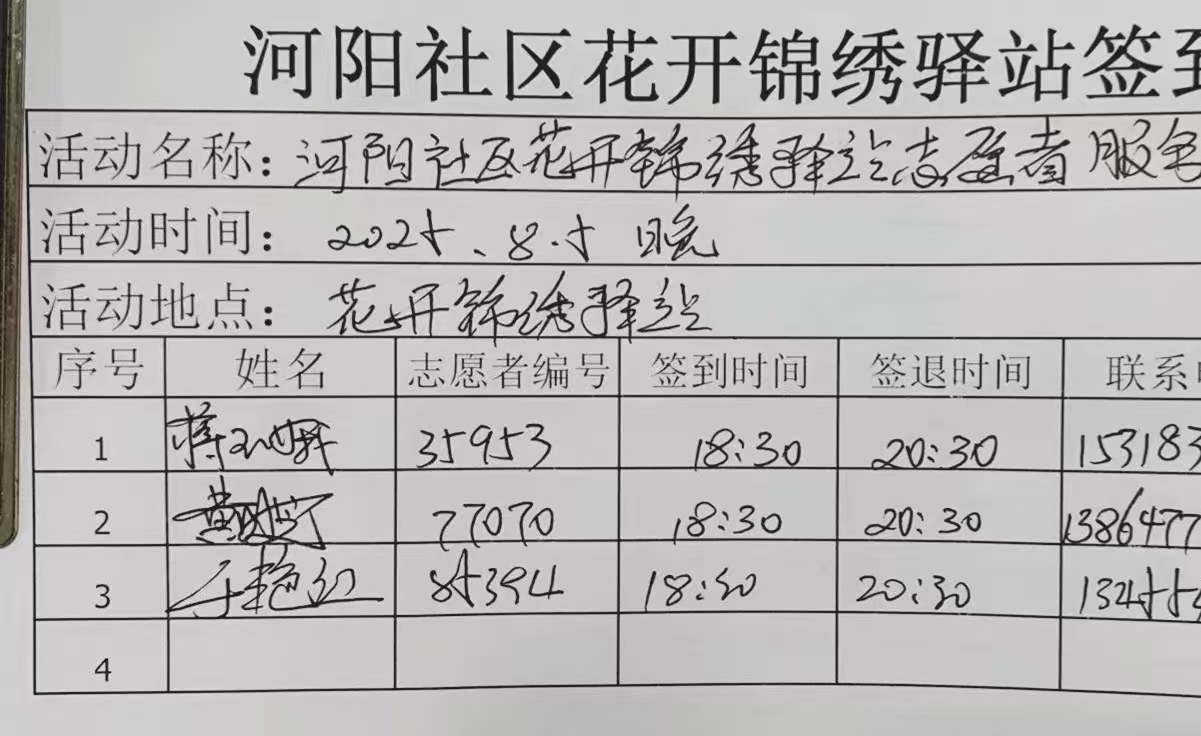 河阳社区花开锦绣驿站签到
活动名称：河阳社区花开锦绣驿站志愿者服务
活动时间：2025.8.5 晚
活动地点：花开锦绣驿站
序号 姓名 志愿者编号 签到时间 签退时间 联系
1 35953 18:30 20:30 153183
2 77070 18:30 20:30 1386477
3 于艳红 85394 18:30 20:30 132455
4